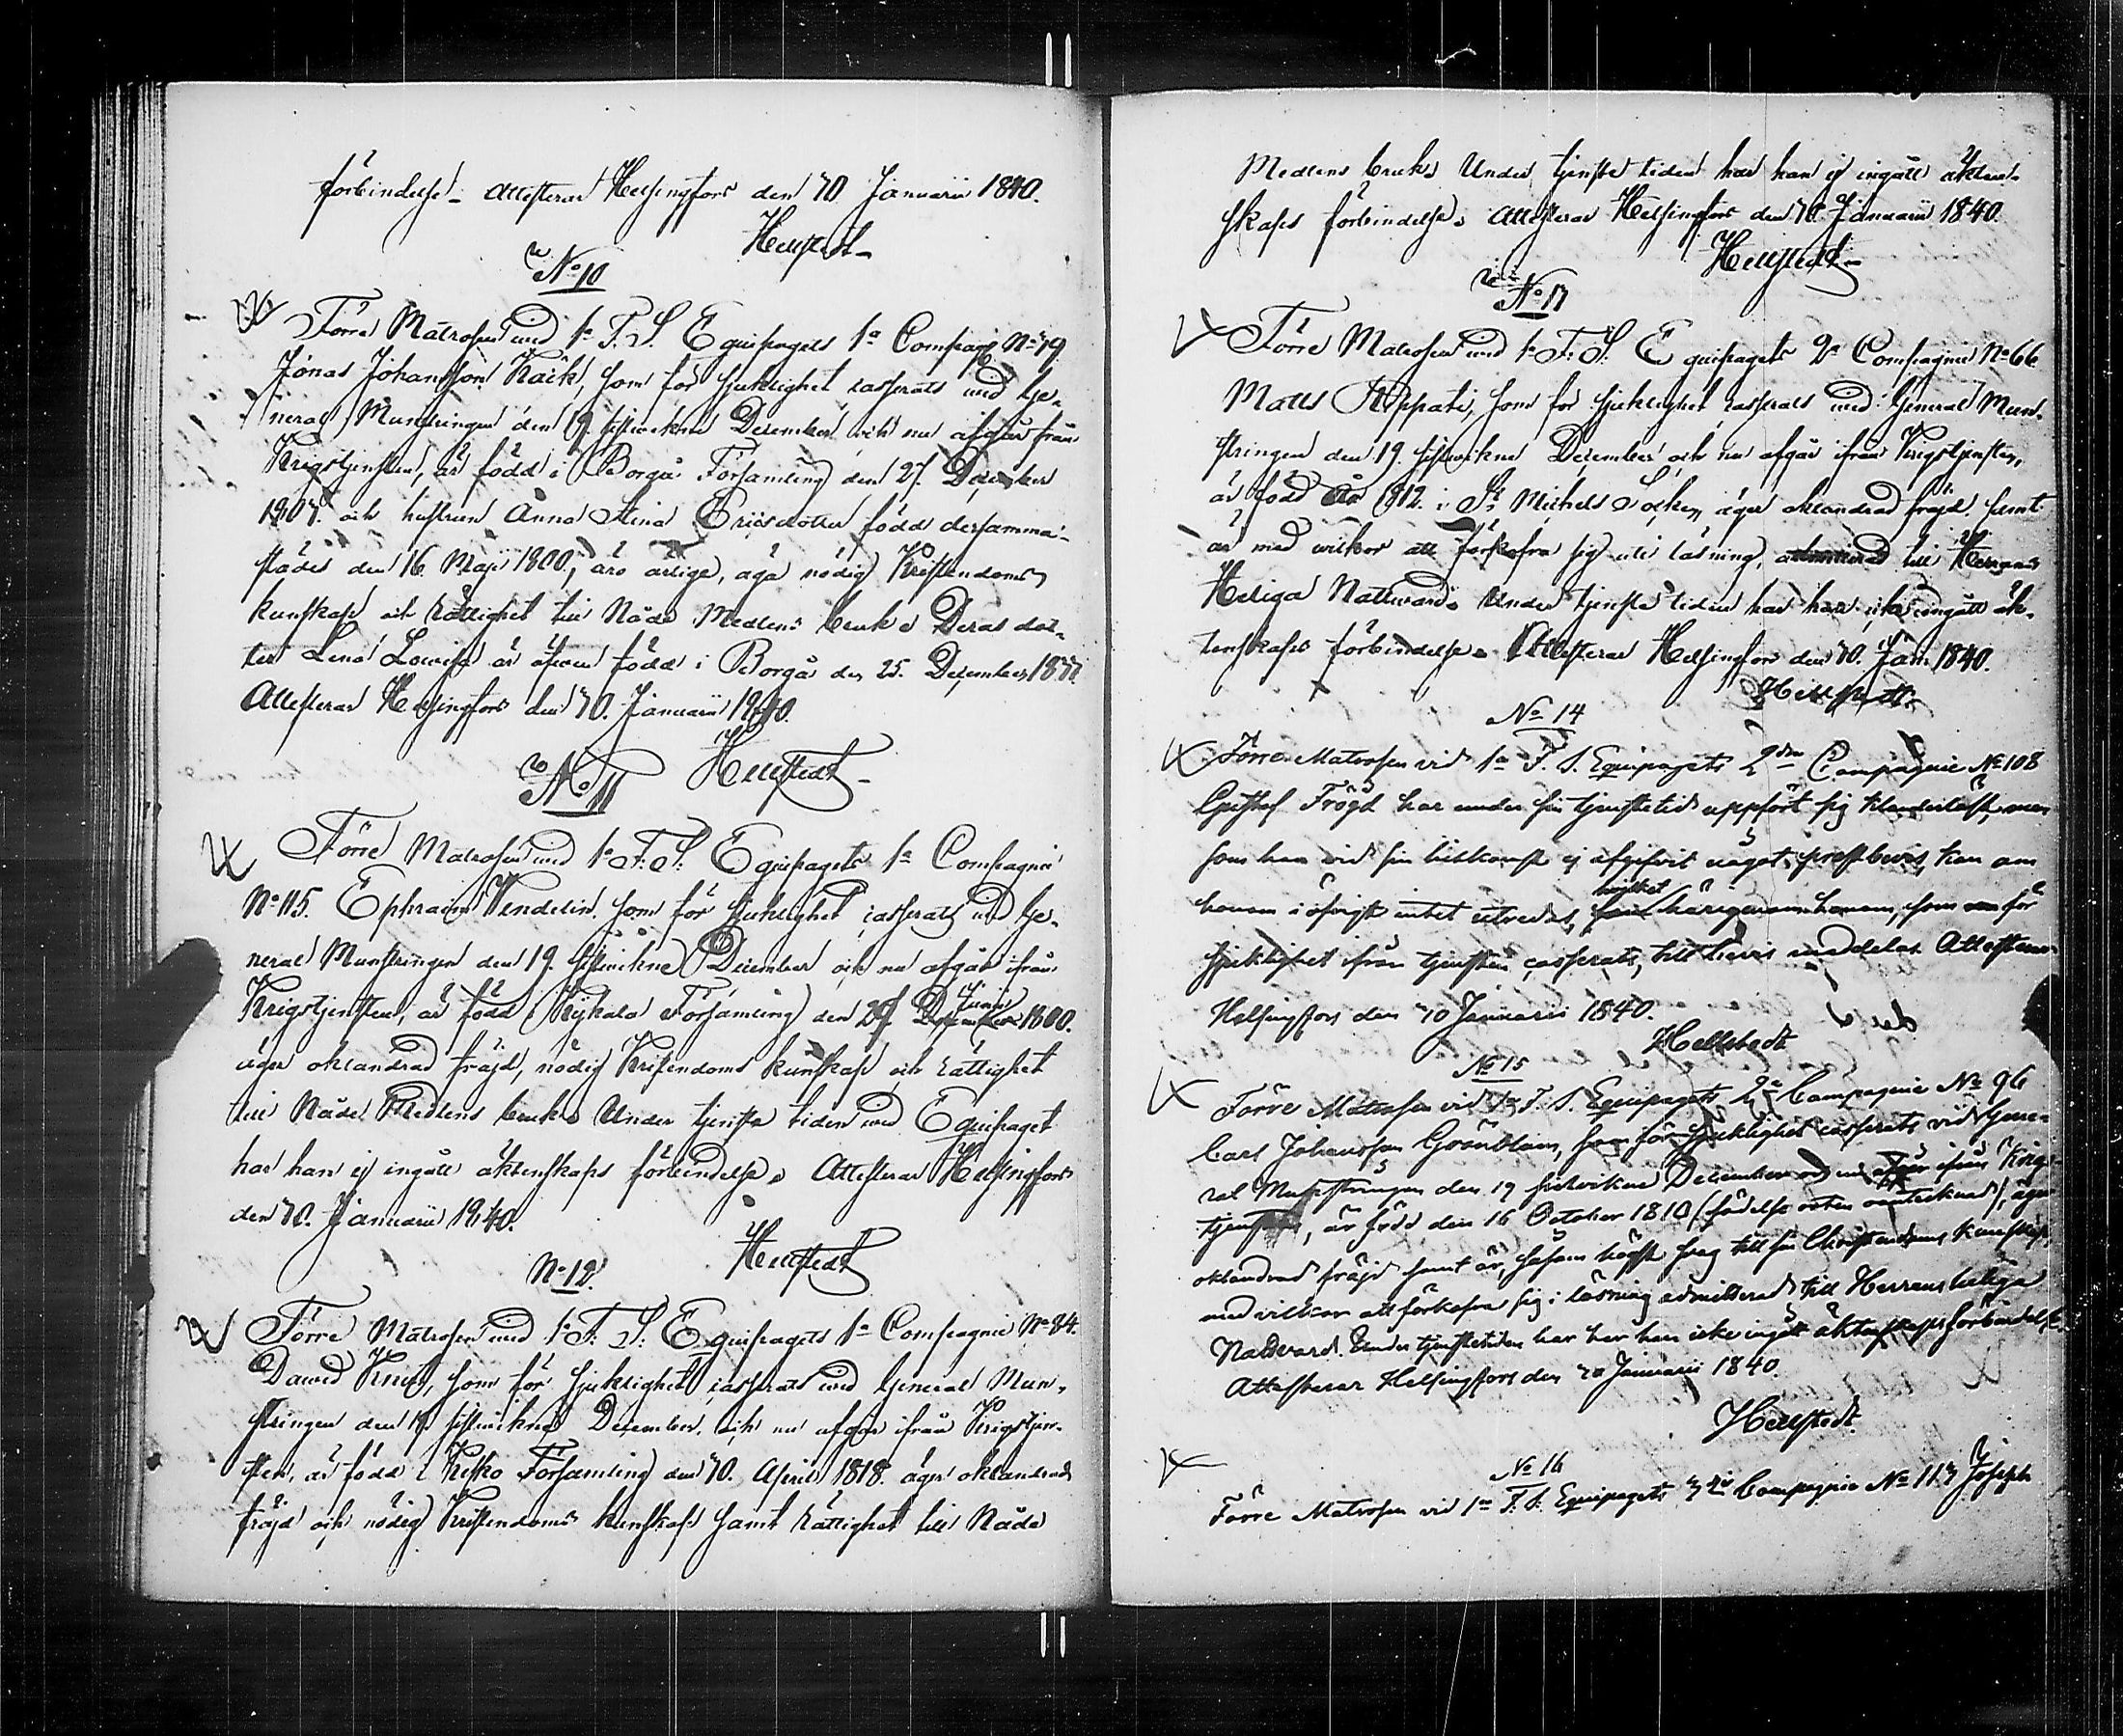 förbindelse. Attesterar Helsingfors den 30 Januarii 1840.
Hellstedt
No 10
Förre Matrosen vid 1a F. S. Equipagets 1a Compagnie No 19
Jonas Johansson Räck, som för sjuklighet casserats vid Ge-
neral Munstringen den 19 sistvikne December och nu afgår från
Krigstjensten, är född i Borgå Församling den 27 December
och hustrun Anna Stina Ericsdotter född dersamma-
städes den 16 Maji 1800, äro ärlige, äga nödig Kristendoms
kunskap och rättighet till Nåde Medlens bruk. Deras dot-
ter Lena Lovisa är äfven född i Borgå den 25 December
Attesterar Helsingfors den 30. Januarii 1840.
Hellstedt
No 11
Förre Matrosen vid 1a F. S. Equipagets 1a Compagnie
No 115. Ephraim Vendelin som för sjuklighet casserats vid Ge-
neral Munstringen den 19. sistvikne December och nu afgår ifrån
Krigstjensten, är född i Kyrkala Församling den 24 Junii 1800.
äger oklandrad fräjd, nödig Kristendoms kunskap och rättighet
till Nåde Medlens bruk. Under tjenste tiden vid Equipaget
har han ej ingått äktenskaps förbindelse. Attesterar Helsingfors
den 30. Januarii 1840.
Hellstedt
No 12.
Förre Matrosen vid 1a F. S. Equipagets 1a Compagnie No 84.
David Knif, som för sjuklighet casserats vid General Mun-
stringen den 19 sistvikne December, och nu afgår ifrån Krigstjen-
sten, är född i Kisko Församling den 30. April 1818. äger oklandrad
fräjd och nödig Kristendoms kunskap samt rättighet till Nåde
Medlens bruk. Under tjenste tiden har han ej ingått äkten-
skaps förbindelse. Attesterar Helsingfors den 30. Januarii 1840.
Hellstedt
No 13
Förre Matrosen vid 1a F. S. Equipagets 2a Compagnie No 66
Matts som för sjuklighet casserats vid General Mun-
stringen den 19. sistvikne December och nu afgår ifrån Krigstjensten,
är född År 1812. i St Michels Socken, äger oklandrad fräjd, samt
är med vilkor att förkofra sig uti läsning, admitterad till Herrans
Heliga Nattvard. Under tjenste tiden har han icke ingått äk-
tenskaps förbindelse. Attesterar Helsingfors den 30. Jan. 1840.
Hellstedt
No 14
Förre Matrosen vid 1a F. S. Equipagets 2dra Compagnie No 108
Gustaf Frögd har under sin tjenstetid uppfört sig klanderlöst, men
som han vid sin hitkomst ej afgifvit något prestbevis, kan om
honom i öfrigt intet utredas, hvilket härigenom honom, som för
sjuklighet ifrån tjensten casserats, till bevis meddelas. Attesterar
Helsingfors den 30 Januarii 1840.
Hellstedt
No 15
Förre Matrosen vid 1a F. S. Equipagets 2a Compagnie No 96
Carl Johansson Grönblom, som för sjuklighet casserats vid Gene-
ral Munstringen den 19 sistvikne December och nu afgår ifrån Krigs-
tjensten, är född den 16 October 1810 (födelse orten oantecknad), äger
oklandrad fräjd samt är, såsom högst svag till sin Christendoms kunskap,
med vilkor att förkofra sig i läsning admitterad till Herrans heliga
Nattvard. Under tjenstetiden har har han icke ingått äktenskaps förbindelse.
Attesterar Helsingfors den 30 Januarii 1840.
Hellstedt.
No 16
Förre Matrosen vid 1a F. S. Equipagets 3die Compagnie No 113 Joseph